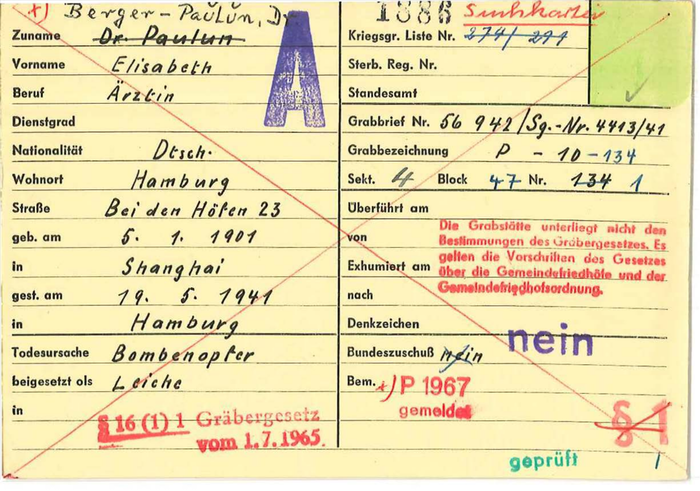 x) Berger-Paulun, Dr.
Zuname Dr. Paulun
Vorname Elisabeth
Beruf Ärztin
Dienstgrad
Nationalität Dtsch.
Wohnort Hamburg
Straße Bei den Höfen 23
geb. am 5. 1. 1901
in Shanghai
gest. am 19. 5. 1941
in Hamburg
Todesursache Bombenopfer
beigesetzt als Leiche
in
§ 16 (1) 1 Gräbergesetz
vom 1.7.1965.
A
1886 Suchkartei
Kriegsgr. Liste Nr. 274/291
Sterb. Reg. Nr.
Standesamt
Grabbrief Nr. 56 942/Sg.-Nr. 4413/41
Grabbezeichnung P - 10 - 134
Sekt. 4 Block 47 Nr. 134 1
Überführt am
von
Exhumiert am
nach
Die Grabstätte unterliegt nicht den
Bestimmungen des Gräbergesetzes. Es
gelten die Vorschriften des Gesetzes
über die Gemeindefriedhöfe und der
Gemeindefriedhofsordnung.
Denkzeichen nein
Bundeszuschuß nein
Bem. x) P 1967
gemeldet
§ 1
geprüft 1